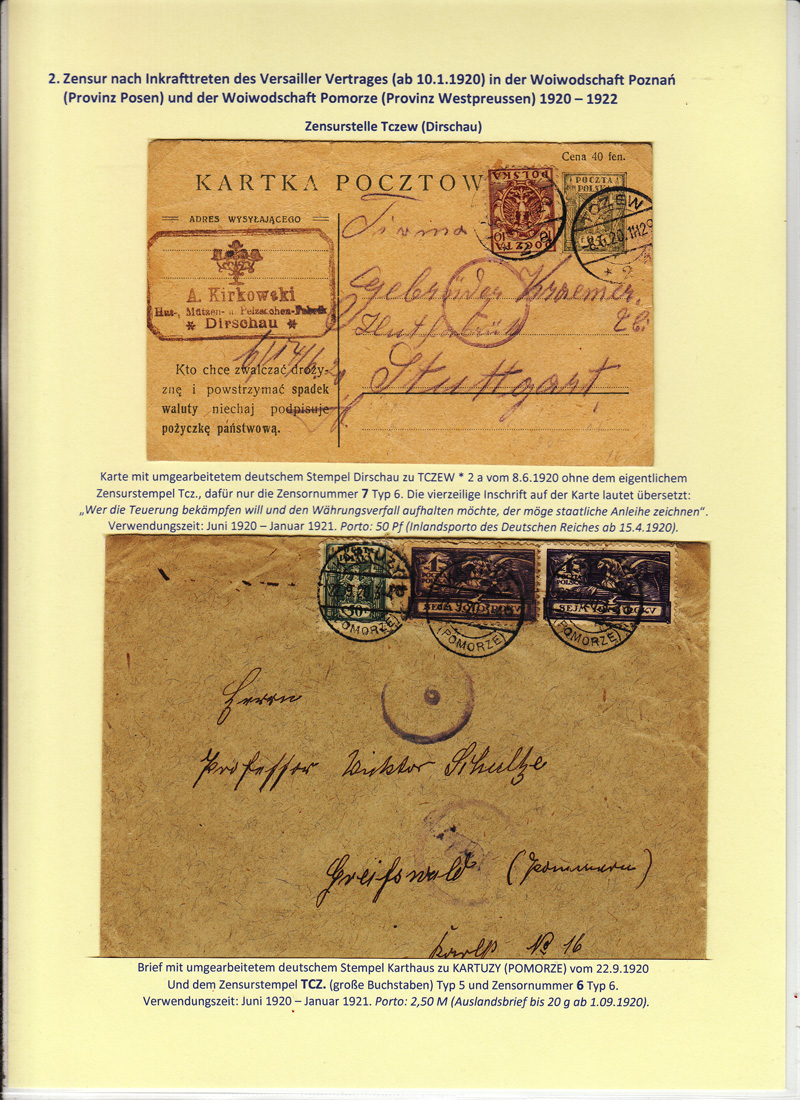 2. Zensur nach Inkrafttreten des Versailler Vertrages (ab 10.1.1920) in der Woiwodschaft Poznań
(Provinz Posen) und der Woiwodschaft Pomorze (Provinz Westpreussen) 1920 – 1922
Zensurstelle Tczew (Dirschau)
Cena 40 fen.
KARTKA POCZTOW
POCZTA
POLSKA
POLSKA
POCZTA
10
TCZEW
8.6.20.
* 2
ADRES WYSYŁAJĄCEGO
Firma
A. Kirkowski
Hut-, Mützen- u. Pelzsachen-Fabrik
* Dirschau *
Gebrüder Kraemer,
Hutfabrik
Stuttgart
Kto chce zwalczać droży-
znę i powstrzymać spadek
waluty niechaj podpisuje
pożyczkę państwową.
Karte mit umgearbeitetem deutschem Stempel Dirschau zu TCZEW * 2 a vom 8.6.1920 ohne dem eigentlichem
Zensurstempel Tcz., dafür nur die Zensornummer 7 Typ 6. Die vierzeilige Inschrift auf der Karte lautet übersetzt:
„Wer die Teuerung bekämpfen will und den Währungsverfall aufhalten möchte, der möge staatliche Anleihe zeichnen“.
Verwendungszeit: Juni 1920 – Januar 1921. Porto: 50 Pf (Inlandsporto des Deutschen Reiches ab 15.4.1920).
KARTUZY
22.9.20
(POMORZE)
(POMORZE)
(POMORZE)
Herrn
Professor Viktor Schultze
Greifswald (Pommern)
Karlst No 16
Brief mit umgearbeitetem deutschem Stempel Karthaus zu KARTUZY (POMORZE) vom 22.9.1920
Und dem Zensurstempel TCZ. (große Buchstaben) Typ 5 und Zensornummer 6 Typ 6.
Verwendungszeit: Juni 1920 – Januar 1921. Porto: 2,50 M (Auslandsbrief bis 20 g ab 1.09.1920).